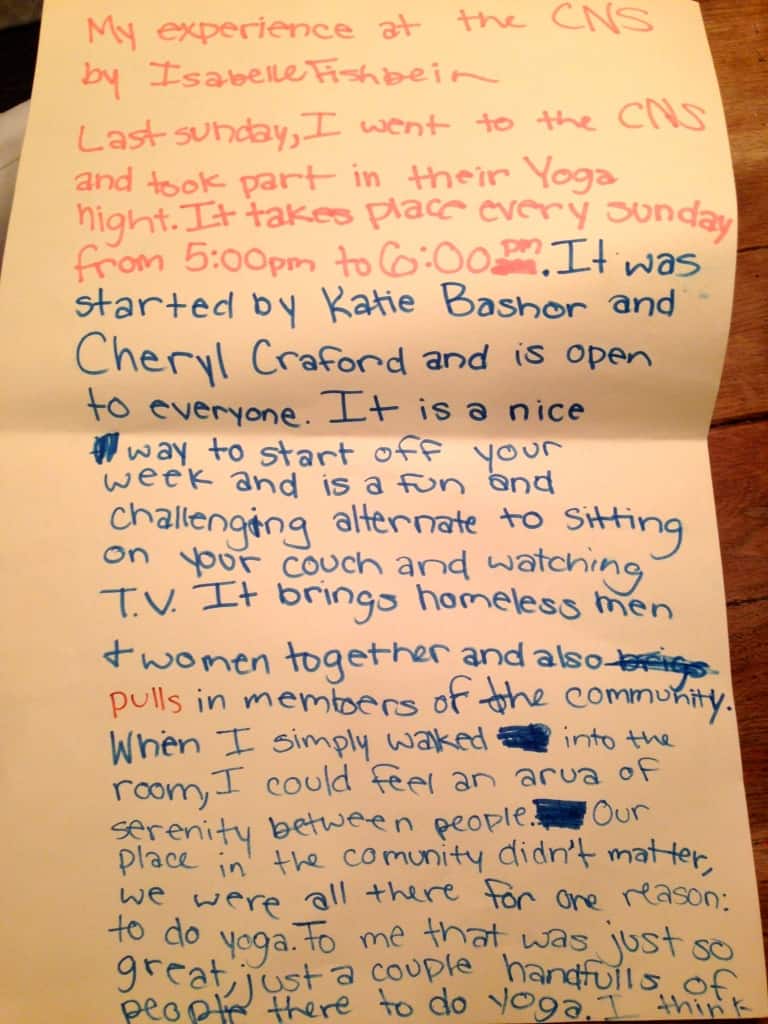 My experience at the CNS
by Isabelle Fishbein
Last sunday, I went to the CNS
and took part in their Yoga
night. It takes place every sunday
from 5:00pm to 6:00 pm. It was
started by Katie Bashor and
Cheryl Craford and is open
to everyone. It is a nice
way to start off your
week and is a fun and
challenging alternate to sitting
on your couch and watching
T.V. It brings homeless men
+ women together and also brigs
pulls in members of the community.
When I simply walked into the
room, I could feel an arua of
serenity between people. Our
place in the comunity didn't matter,
we were all there for one reason:
to do yoga. To me that was just so
great, just a couple handfulls of
people there to do yoga. I think